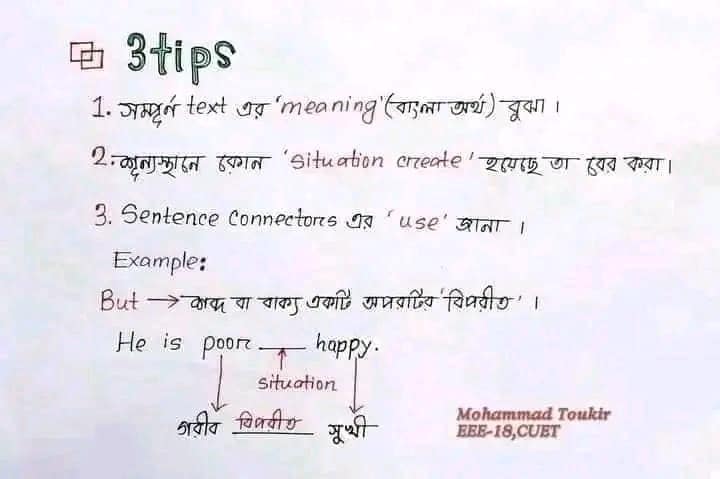 3tips
1. সম্পূর্ন text এর 'meaning' (বাংলা অর্থ) বুঝা ।
2. শূন্যস্থানে কোন 'situation create' হয়েছে তা বের করা।
3. Sentence Connectors এর 'use' জানা ।
Example:
But → শব্দ বা বাক্য একটি অপরটির 'বিপরীত' ।
He is poor ___ happy.
situation
গরীব বিপরীত সুখী
Mohammad Toukir
EEE-18,CUET